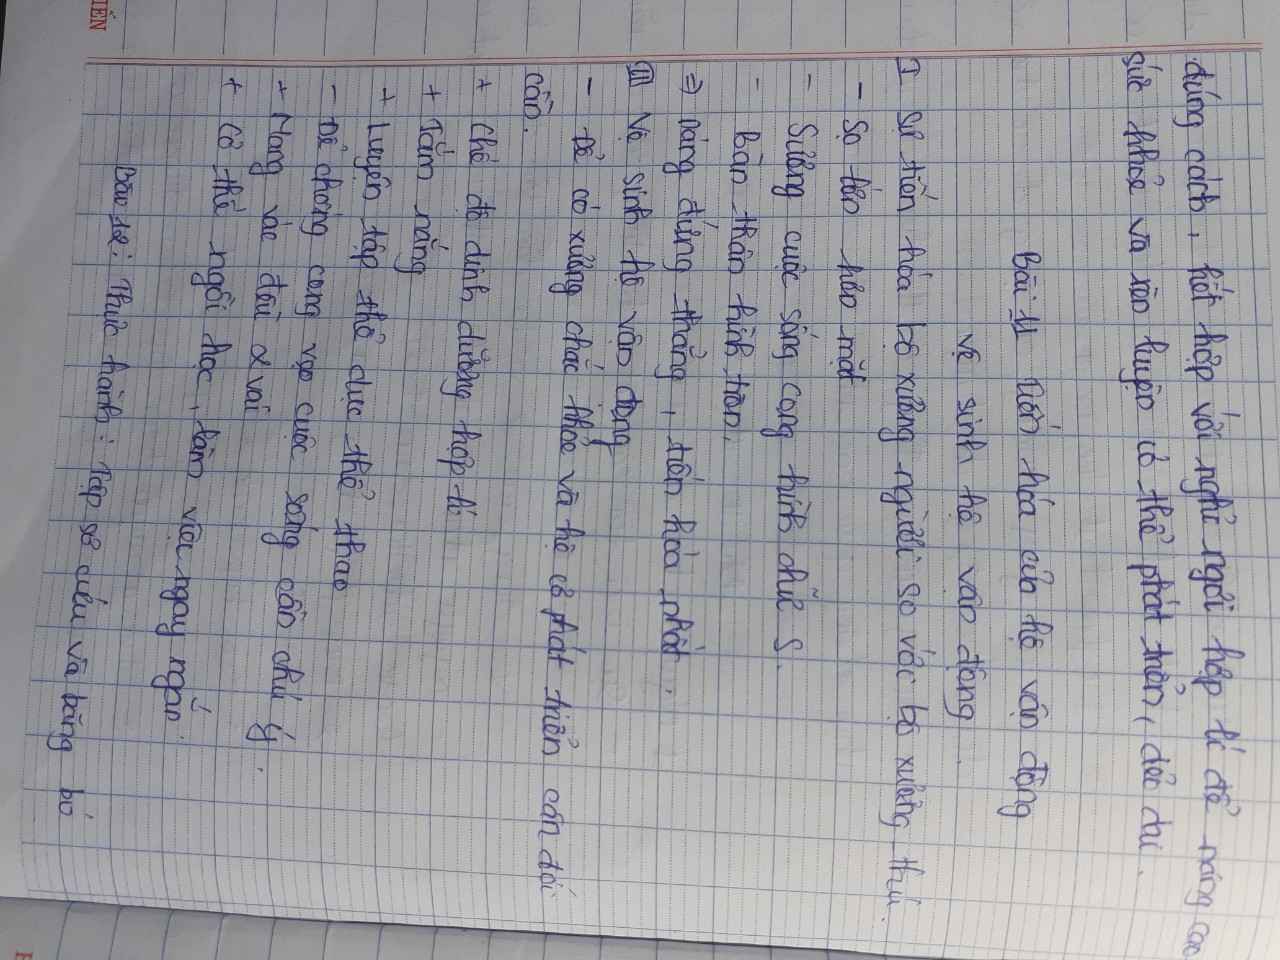 đúng cách, kết hợp với nghỉ ngơi hợp lí để nâng cao
sức khỏe và rèn luyện cơ thể phát triển, dẻo dai.
Bài 11 Tiến hóa của hệ vận động
vệ sinh hệ vận động
I Sự tiến hóa bộ xương người so với bộ xương thú.
- Sọ lớn hơn mặt
- Xương cuộc sống cong hình chữ S.
- Bàn thân hình tròn.
=> Dáng đứng thẳng, tiến hóa nhất.
III Vệ sinh hệ vận động
- Để có xương chắc khỏe và hệ cơ phát triển cân đối
cần.
+ Chế độ dinh dưỡng hợp lí
+ Tắm nắng
+ Luyện tập thể dục thể thao
- Để chống cong vẹo cuộc sống cần chú ý.
+ Mang vác đều 2 vai
+ Cơ thể ngồi học, làm việc ngay ngắn.
Bài 12: Thực hành: Tập sơ cứu và băng bó
IÊN